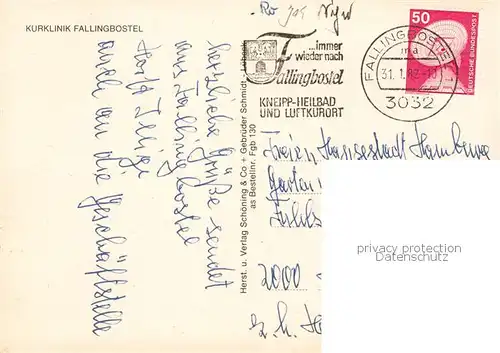 KURKLINIK FALLINGBOSTEL
herzliche Grüße sendet
aus Fallingbostel
auch an die Geschäftsstelle
Herst. u. Verlag Schöning & Co + Gebrüder Schmidt
as Bestellnr. Fgb 130
...immer
wieder nach
Fallingbostel
KNEIPP-HEILBAD
UND LUFTKURORT
FALLINGBOSTEL
ma
31.1.83-10
3032
50
DEUTSCHE BUNDESPOST
Freien Hansestadt Hamburg
Garten
2000
z. h.
privacy protection
Datenschutz